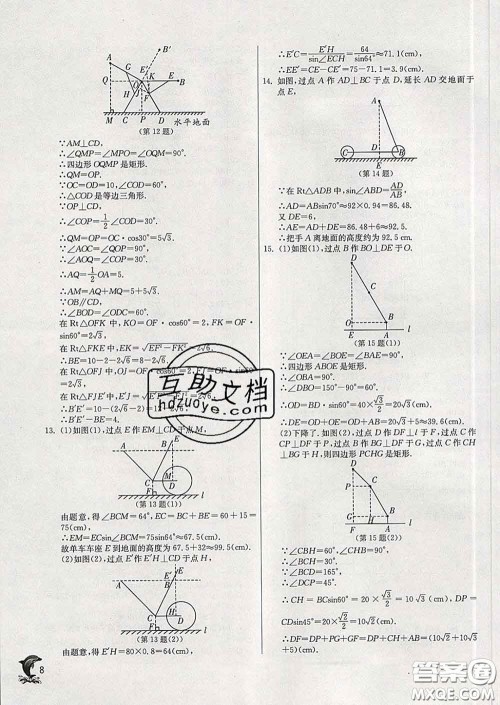 (第12题)
水平地面
∵AM⊥CD,
∴∠QMP=∠MPO=∠OQM=90°.
∴四边形OQMP是矩形.
∴QM=OP.
∵OC=OD=10,∠COD=60°,
∴△COD是等边三角形.
∵OP⊥CD,
∴∠COP=1/2∠COD=30°.
∴QM=OP=OC·cos30°=5√3.
∵∠AOC=∠QOP=90°,
∴∠AOQ=∠COP=30°.
∴AQ=1/2OA=5.
∴AM=AQ+MQ=5+5√3.
∵OB∥CD,
∴∠BOD=∠ODC=60°.
在Rt△OFK中,KO=OF·cos60°=2,FK=OF·
sin60°=2√3.
在Rt△FKE中,EK=√(EF²-FK²)=2√6.
∴BE=10-2-2√6=8-2√6.
在Rt△OFJ中,OJ=OF·cos60°=2,
在Rt△FJE′中,E′J=
∴B′E′-BE=4.
13. (1)如图(1),过点E作EM⊥CD于点M,
(第13题(1))
由题意,得∠BCM=64°,EC=BC+BE=60+15=
75(cm),
∴EM=ECsin∠BCM=75sin64°≈67.5(cm).
故单车车座E到地面的高度为67.5+32≈99.5(cm).
(2)如图(2),过点E′作E′H⊥CD于点H,
(第13题(2))
由题意,得E′H=80×0.8=64(cm),
8
∴E′C=E′H/sin∠ECH=64/sin64°≈71.1(cm).
∴EE′=CE-CE′=75-71.1=3.9(cm).
14. 如图,过点A作AD⊥BC于点D,延长AD交地面于
点E,
(第14题)
∵在Rt△ADB中,sin∠ABD=AD/AB,
∴AD=ABsin70°≈92×0.94=86.48.
又DE=6,
∴AE=AD+DE=86.48+6≈92.5.
∴把手A离地面的高度约为92.5cm.
15. (1)如图(1),过点B作BO⊥DE于O.
(第15题(1))
∵∠OEA=∠BOE=∠BAE=90°,
∴四边形ABOE是矩形.
∴∠OBA=90°.
∴∠DBO=150°-90°=60°.
∴OD=BD·sin60°=40×√3/2=20√3(cm).
∴DE=OD+OE=OD+AB=
(2)下降了.如图(2),过点D作DF⊥l于F,过点C作
CP⊥DF于P,过点B作BG⊥DF于G,过点C作
CH⊥BG于H,则四边形PCHG是矩形.
(第15题(2))
∵∠CBH=60°,∠CHB=90°,
∴∠BCH=30°.
∴∠DCP=45°.
∴CH=BCsin60°=20×√3/2=10√3(cm),DP=
CDsin45°=20×√2/2=10√2(cm).
∴DF=DP+PG+GF=DP+CH+AB=(10√2+10√3
+5)(cm).
互助文档
hdzuoye.com
答案圈
MXQE.COM